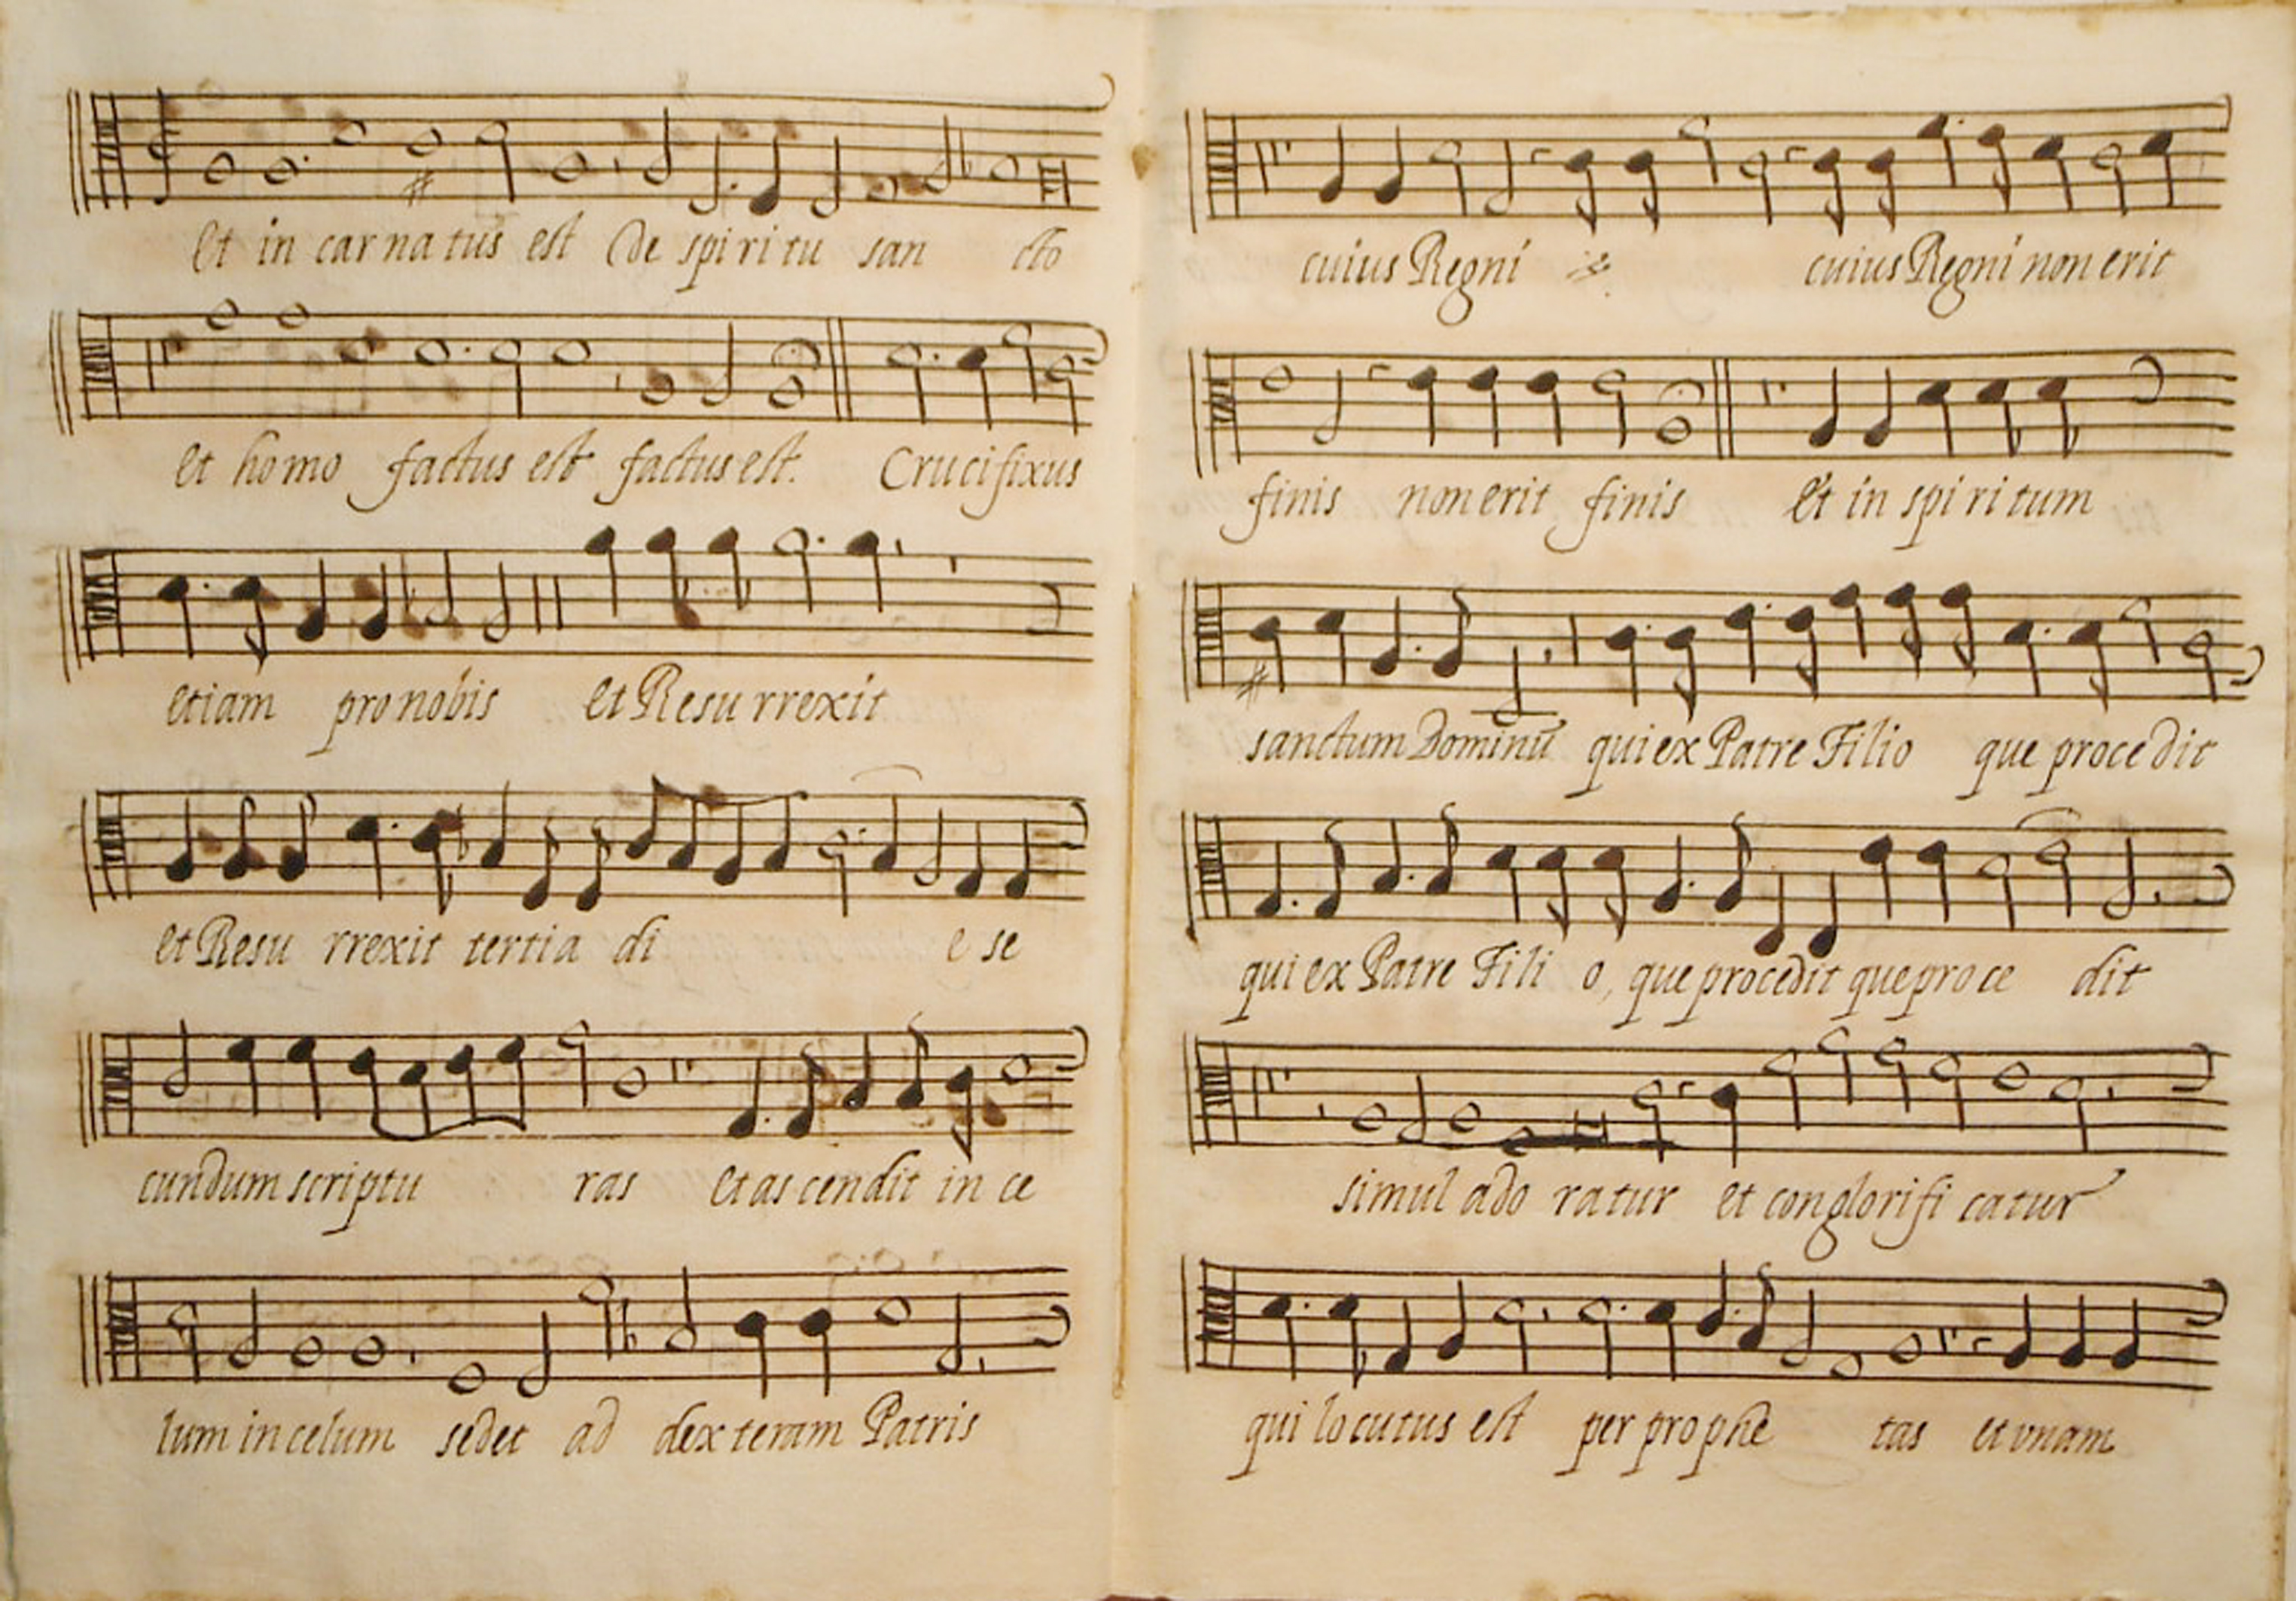 Et in car na tus est De spi ri tu san cto
et homo factus est factus est. Crucifixus
etiam pro nobis et Resu rrexit
et Resu rrexit tertia di e se
cundum scriptu ras et as cendit in ce
lum in celum sedet ad dexteram Patris
cuius Regni cuius Regni non erit
finis non erit finis et in spi ri tum
sanctum Dominū qui ex Patre Filio que procedit
qui ex Patre Fili o, que procedit que proce dit
simul ado ratur et conglorifi catur
qui locutus est per prophe tas et vnam